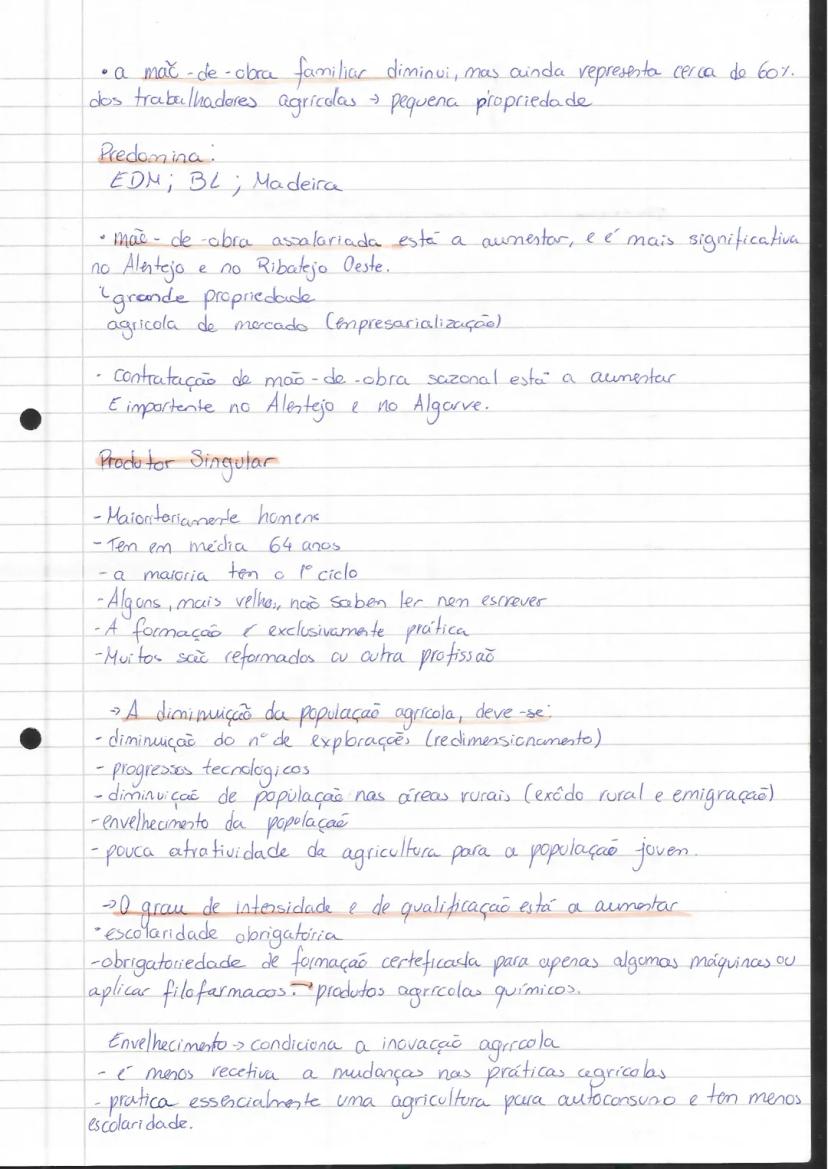 • a mão-de-obra familiar diminui, mas ainda representa cerca de 60%.
dos trabalhadores agrícolas → pequena propriedade
Predomina:
EDM; BL; Madeira
• mão-de-obra assalariada está a aumentar, e é mais significativa
no Alentejo e no Ribatejo Oeste.
↳ grande propriedade
agrícola de mercado (empresarialização)
• contratação de mão-de-obra sazonal está a aumentar
E importante no Alentejo e no Algarve.
Produtor Singular
- Maioritariamente homens
- Tem em média 64 anos
- a maioria tem o 1º ciclo
- Alguns, mais velhos, não sabem ler nem escrever
- A formação é exclusivamente prática
- Muitos são reformados ou outra profissão
→ A diminuição da população agrícola, deve-se:
- diminuição do nº de explorações (redimensionamento)
- progressos tecnológicos
- diminuição de população nas áreas rurais (exôdo rural e emigração)
- envelhecimento da população
- pouca atratividade da agricultura para a população jovem.
→ O grau de intensidade e de qualificação está a aumentar
• escolaridade obrigatória
- obrigatoriedade de formação certeficada para apenas algumas máquinas ou
aplicar filofarmacos. → produtos agrícolas químicos.
Envelhecimento → condiciona a inovação agrícola
- é menos recetiva a mudanças nas práticas agrícolas
- pratica essencialmente uma agricultura para autoconsumo e tem menos
escolaridade.